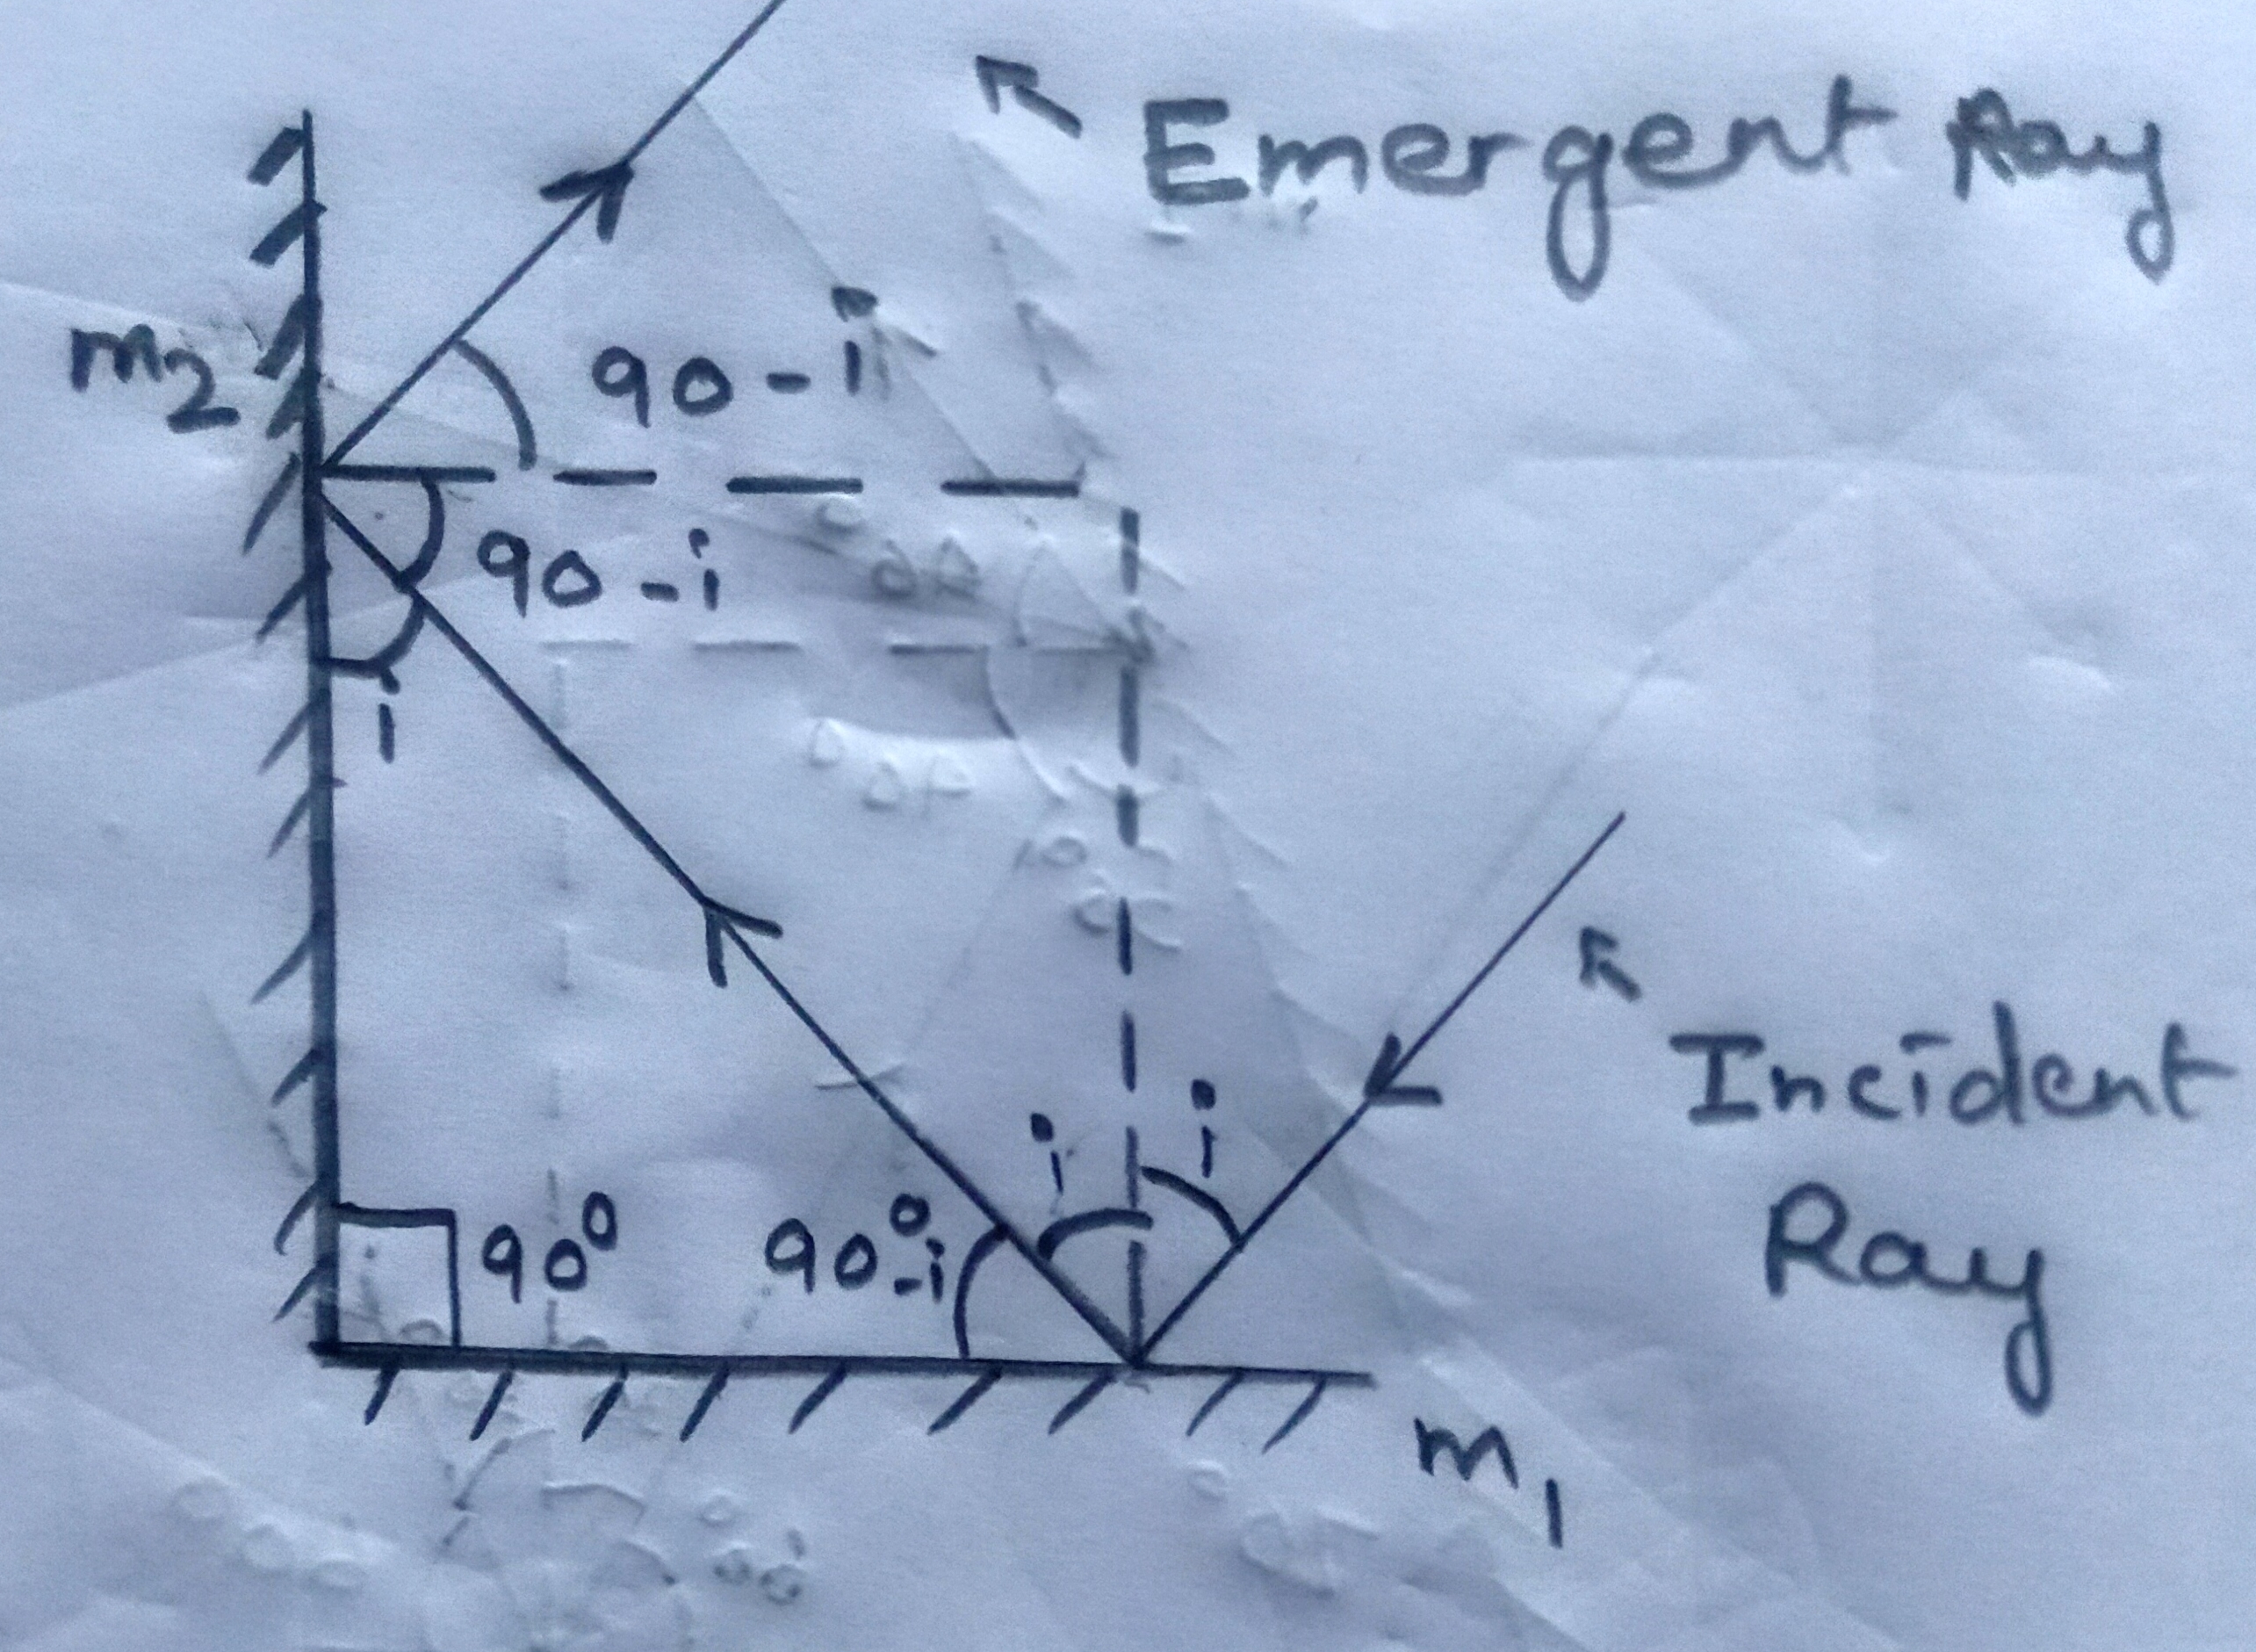 Emergent Ray
m2
90-i
90-i
i
i
i
Incident
Ray
90°
90°-i
m1